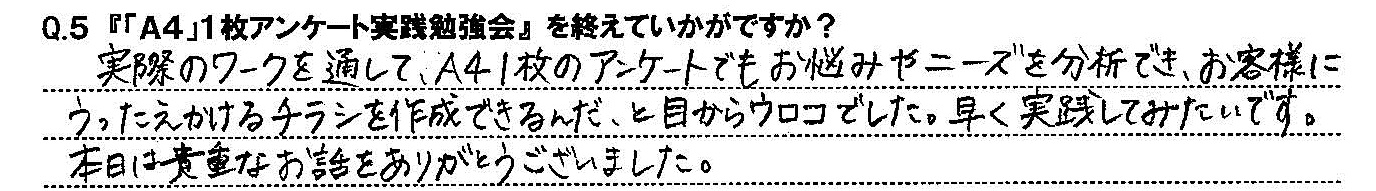 Q.5 『「A4」1枚アンケート実践勉強会』を終えていかがですか？
実際のワークを通して、A4 1枚のアンケートでもお悩みやニーズを分析でき、お客様に
うったえかけるチラシを作成できるんだ、と目からウロコでした。早く実践してみたいです。
本日は貴重なお話をありがとうございました。